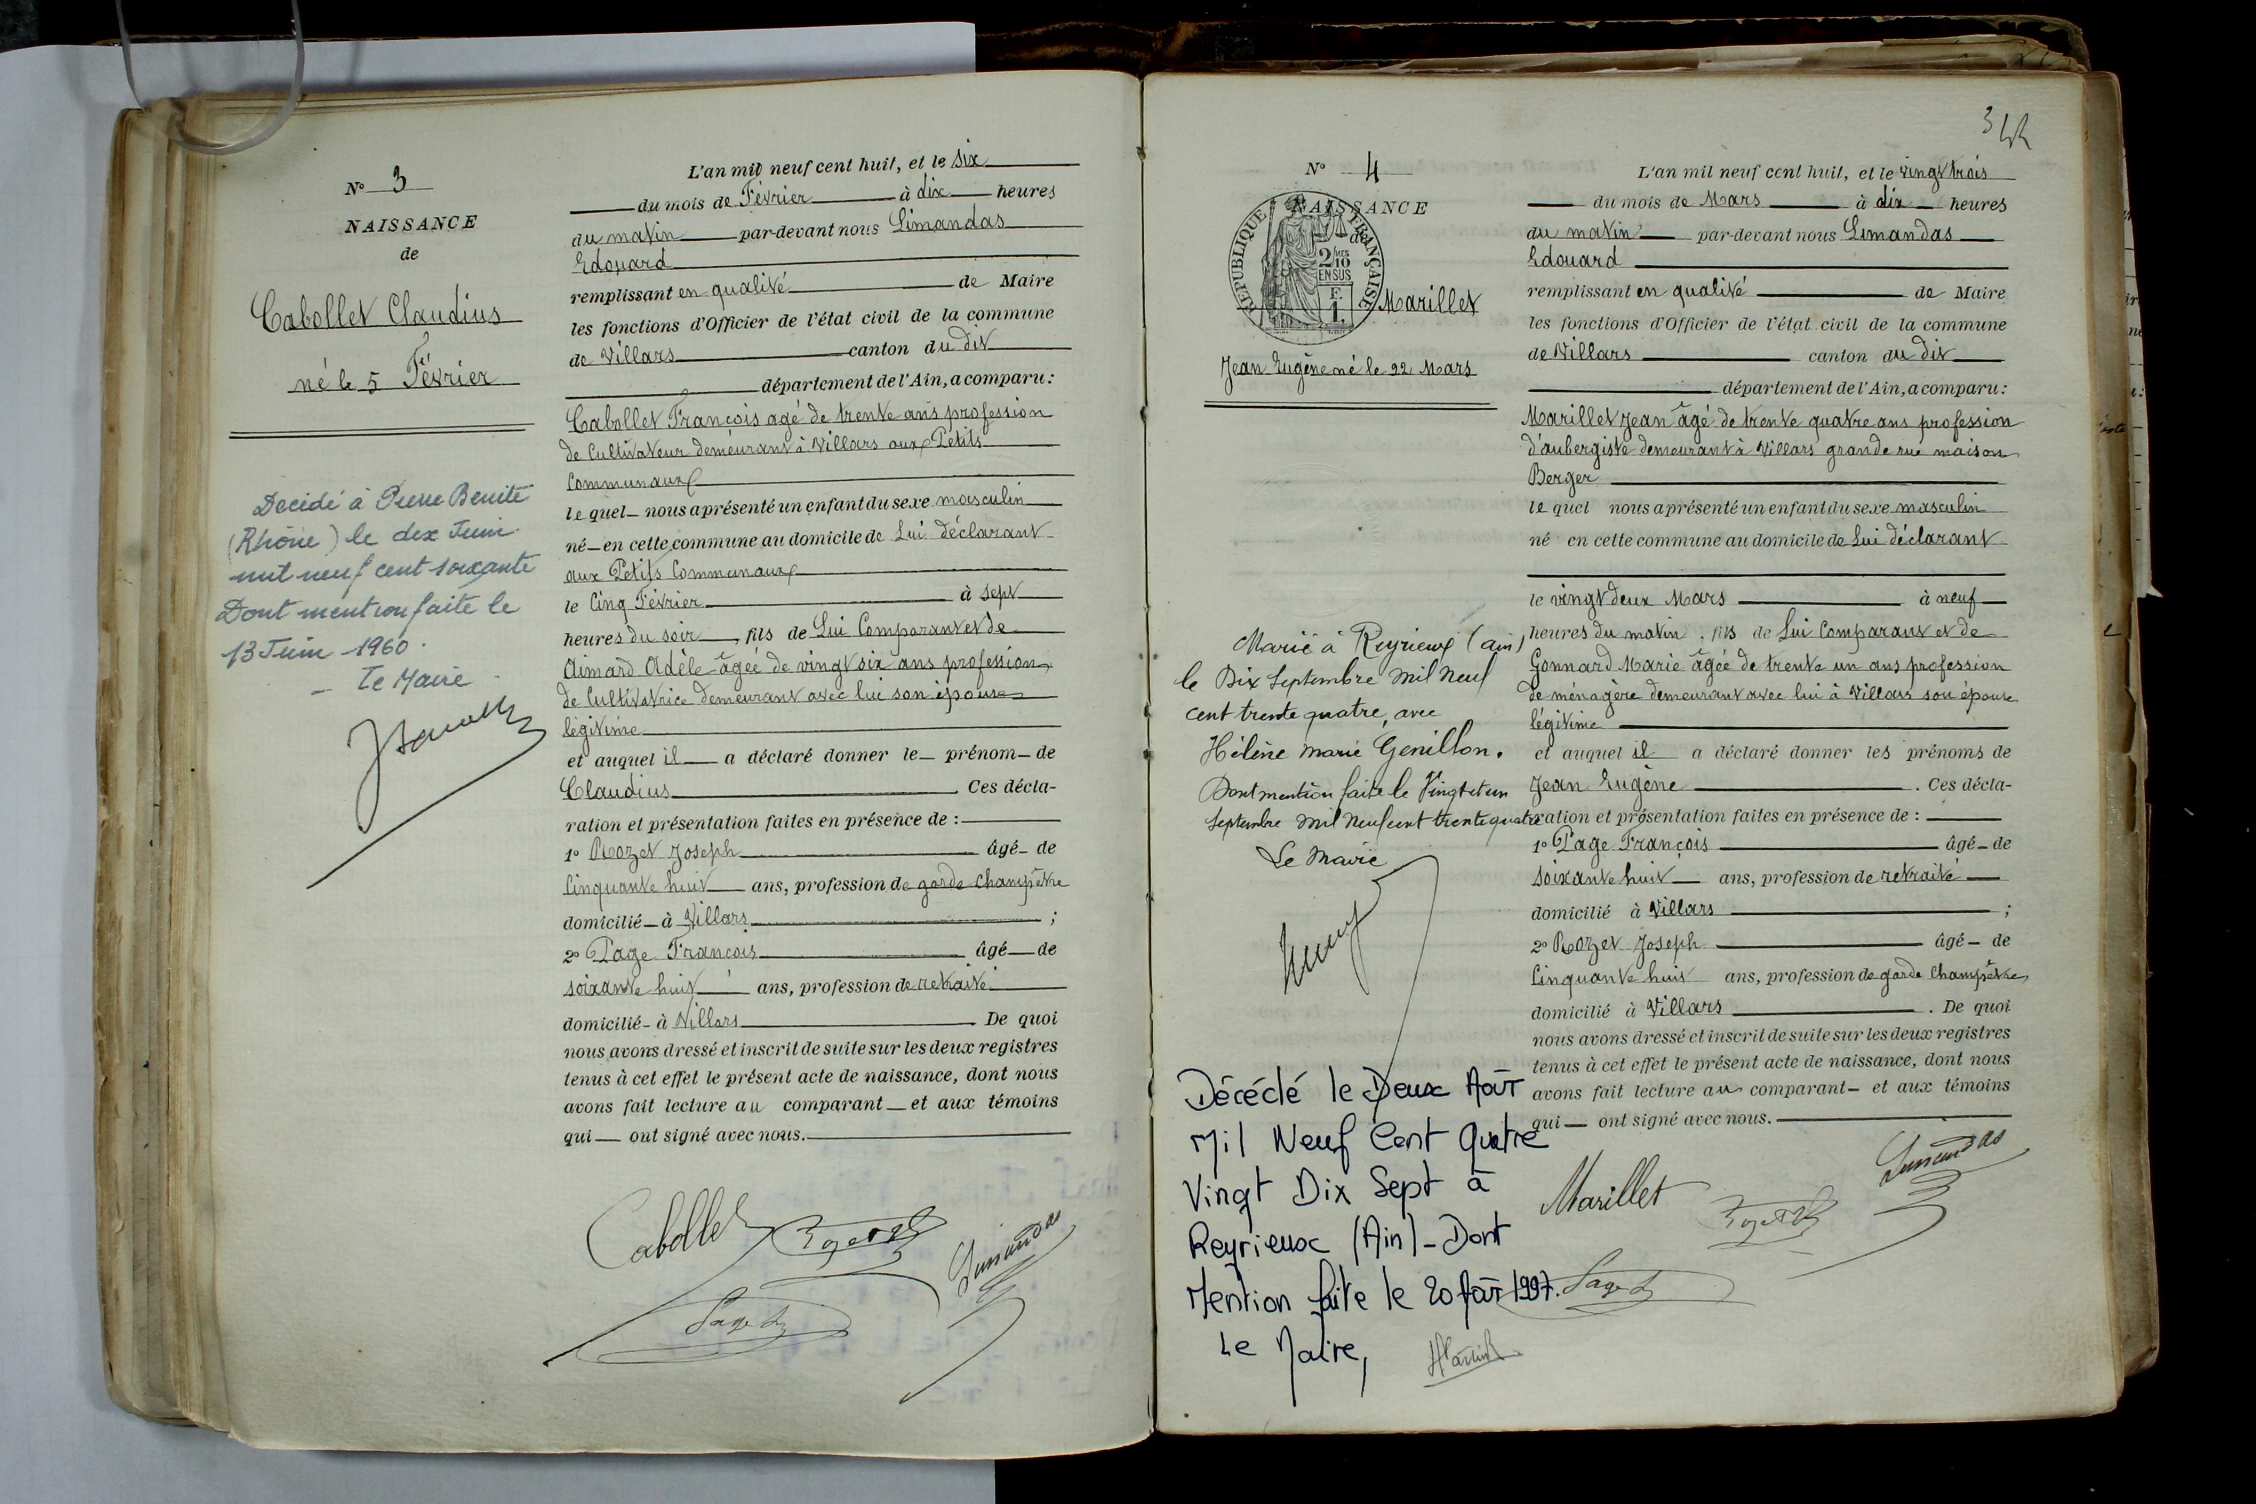 N° 3
NAISSANCE
de
Cabollet Claudius
né le 5 Février
Décédé à Pierre Bénite
(Rhône) le dix Juin
mil neuf cent soixante
Dont mention faite le
13 Juin 1960.
Le Maire
L'an mil neuf cent huit, et le six
du mois de Février à dix heures
du matin par-devant nous Limandas
Edouard
remplissant en qualité de Maire
les fonctions d'Officier de l'état civil de la commune
de Villars canton du dit
département de l'Ain, a comparu :
Cabollet François agé de trente ans profession
de Cultivateur demeurant à Villars aux Petits
Communaux
lequel nous a présenté un enfant du sexe masculin
né en cette commune au domicile de Lui déclarant
aux Petits Communaux
le Cinq Février à sept
heures du soir, fils de Lui Comparant et de
Aimard Adèle âgée de vingt six ans profession
de Cultivatrice demeurant avec lui son épouse
légitime
et auquel il a déclaré donner le prénom de
Claudius Ces décla-
ration et présentation faites en présence de :
1° Rozet Joseph âgé de
Cinquante huit ans, profession de garde champêtre
domicilié à Villars ;
2° Page François âgé de
soixante huit ans, profession de retraité
domicilié à Villars De quoi
nous avons dressé et inscrit de suite sur les deux registres
tenus à cet effet le présent acte de naissance, dont nous
avons fait lecture au comparant et aux témoins
qui ont signé avec nous.
Cabollet
Limandas
Page
N° 4
NAISSANCE
de
REPUBLIQUE FRANÇAISE
2/10
EN SUS
F.
1.
Marillet
Jean Eugène né le 22 Mars
Marié à Reyrieux (Ain)
le Dix Septembre Mil Neuf
cent trente quatre, avec
Hélène Marie Genillon.
Dont mention faite le Vingt et un
Septembre Mil Neuf cent trente quatre
Le Maire
Décédé le Deux Août
Mil Neuf Cent Quatre
Vingt Dix Sept à
Reyrieux (Ain) - Dont
Mention faite le 20 Août 1997.
Le Maire,
L'an mil neuf cent huit, et le vingt trois
du mois de Mars à dix heures
du matin par-devant nous Limandas
Edouard
remplissant en qualité de Maire
les fonctions d'Officier de l'état civil de la commune
de Villars canton du dit
département de l'Ain, a comparu :
Marillet Jean âgé de trente quatre ans profession
d'aubergiste demeurant à Villars grande rue maison
Berger
lequel nous a présenté un enfant du sexe masculin
né en cette commune au domicile de Lui déclarant
le vingt deux Mars à neuf
heures du matin, fils de Lui Comparant et de
Gonnard Marie âgée de trente un ans profession
de ménagère demeurant avec lui à Villars son épouse
légitime
et auquel il a déclaré donner les prénoms de
Jean Eugène. Ces décla-
ration et présentation faites en présence de :
1° Page François âgé de
soixante huit ans, profession de retraité
domicilié à Villars ;
2° Rozet Joseph âgé de
Cinquante huit ans, profession de garde champêtre
domicilié à Villars. De quoi
nous avons dressé et inscrit de suite sur les deux registres
tenus à cet effet le présent acte de naissance, dont nous
avons fait lecture au comparant et aux témoins
qui ont signé avec nous.
Marillet
Limandas
Page